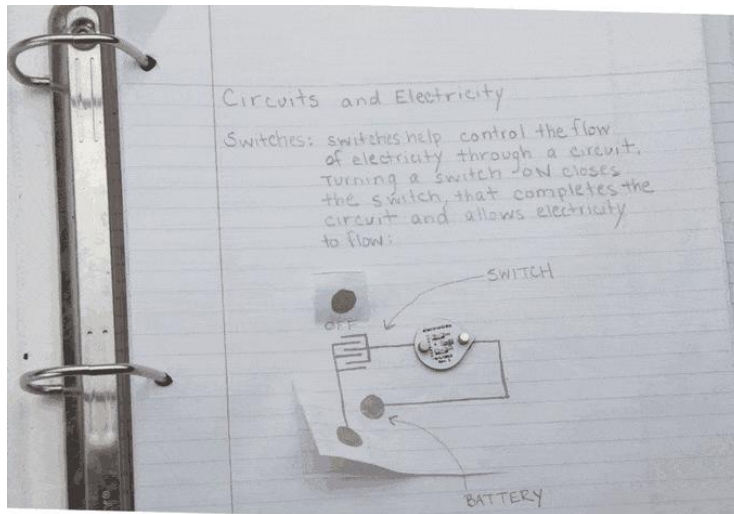 Circuits and Electricity
Switches: switches help control the flow
of electricity through a circuit.
Turning a switch ON closes
the switch, that completes the
circuit and allows electricity
to flow:
SWITCH
OFF
BATTERY